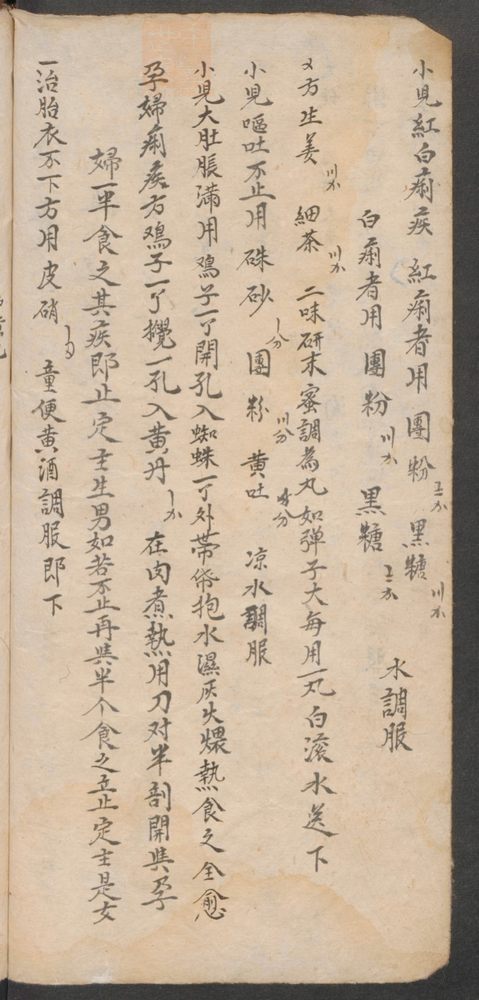 小児紅白痢疾 紅痢者用 團粉 黒糖 〣
白痢者用 團粉 〣 黒糖 水調服
又方生姜 〣 細茶 〣 二味研末蜜調為丸如弹子大每用一丸白滚水送下
小児嘔吐不止用硃砂 〡分 團粉 〣分 黄吐 〤分 凉水調服
小児大肚脹满用鸡子一个開孔入蜘蛛一个外带帋抱水濕灰火煨熱食之全愈
孕婦痢疾方鸡子一个攪一孔入黄丹 〡 在肉煮熱用刀对半剖開與孕
婦一半食之其疾即止定主生男如若不止再與半个食之立止定主是女
一治胎衣不下方用皮硝 童便黄酒調服即下